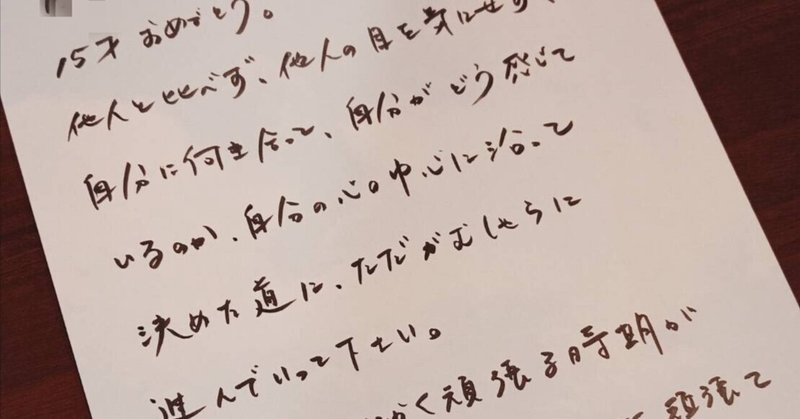 15才 おめでとう。
他人と比べず、他人の目を気にせず、
自分に何き合って、自分がどう感じて
いるのか、自分の心の中心に沿って
決めた道に、ただがむしゃらに
進んでいって下さい。
かく頑張る時期が
頑張って